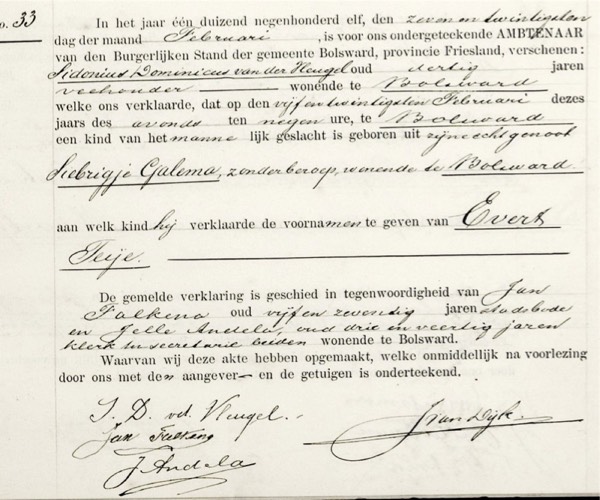 No. 33
In het jaar één duizend negenhonderd elf, den zeven en twintigsten
dag der maand Februari, is voor ons ondergeteekende AMBTENAAR
van den Burgerlijken Stand der gemeente Bolsward, provincie Friesland, verschenen:
Sidonius Dominicus van der Vleugel oud dertig jaren
veehouder wonende te Bolsward
welke ons verklaarde, dat op den vijf en twintigsten Februari dezes
jaars des avonds ten negen ure, te Bolsward
een kind van het mannelijk geslacht is geboren uit zijne echtgenoot
Siebrigje Galema, zonder beroep, wonende te Bolsward.
aan welk kind hij verklaarde de voornamen te geven van Evert
Teije.
De gemelde verklaring is geschied in tegenwoordigheid van Jan
Falkena oud vijf en zeventig jaren stadsbode
en Jelle Andela, oud drie en veertig jaren
klerk ter secretarie beiden wonende te Bolsward.
Waarvan wij deze akte hebben opgemaakt, welke onmiddellijk na voorlezing
door ons met den aangever en de getuigen is onderteekend.
S. D. vd. Vleugel.
Jan Falkena
J van Dijk.
J Andela